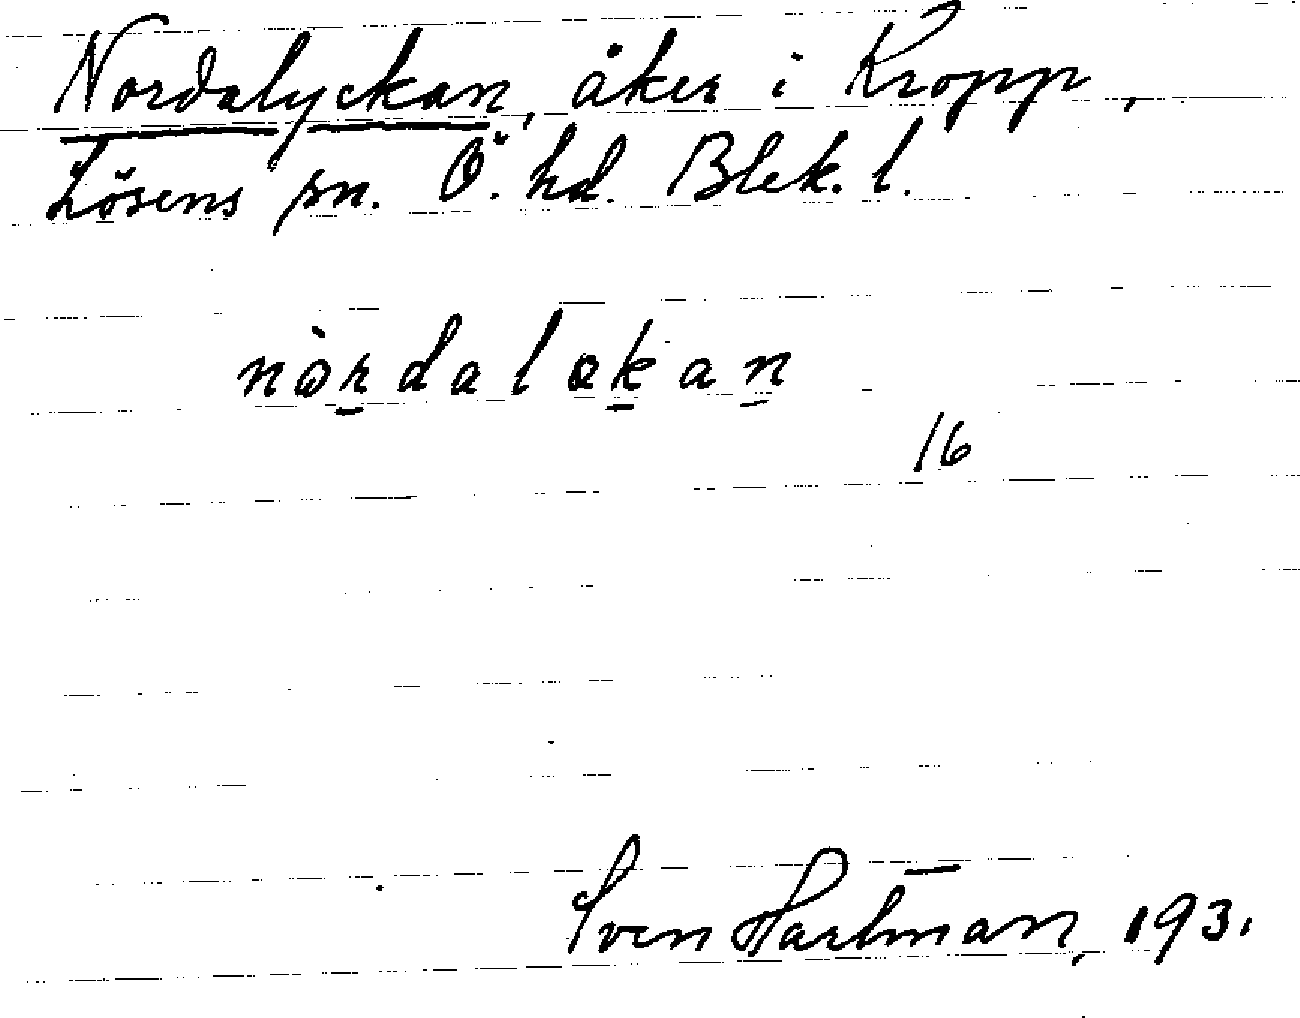 Nordalyckan, åker i Kropp,
Lösens sn. Ö. hd. Blek. l.
nòrdaløkan
16
Sven Hartman, 193.